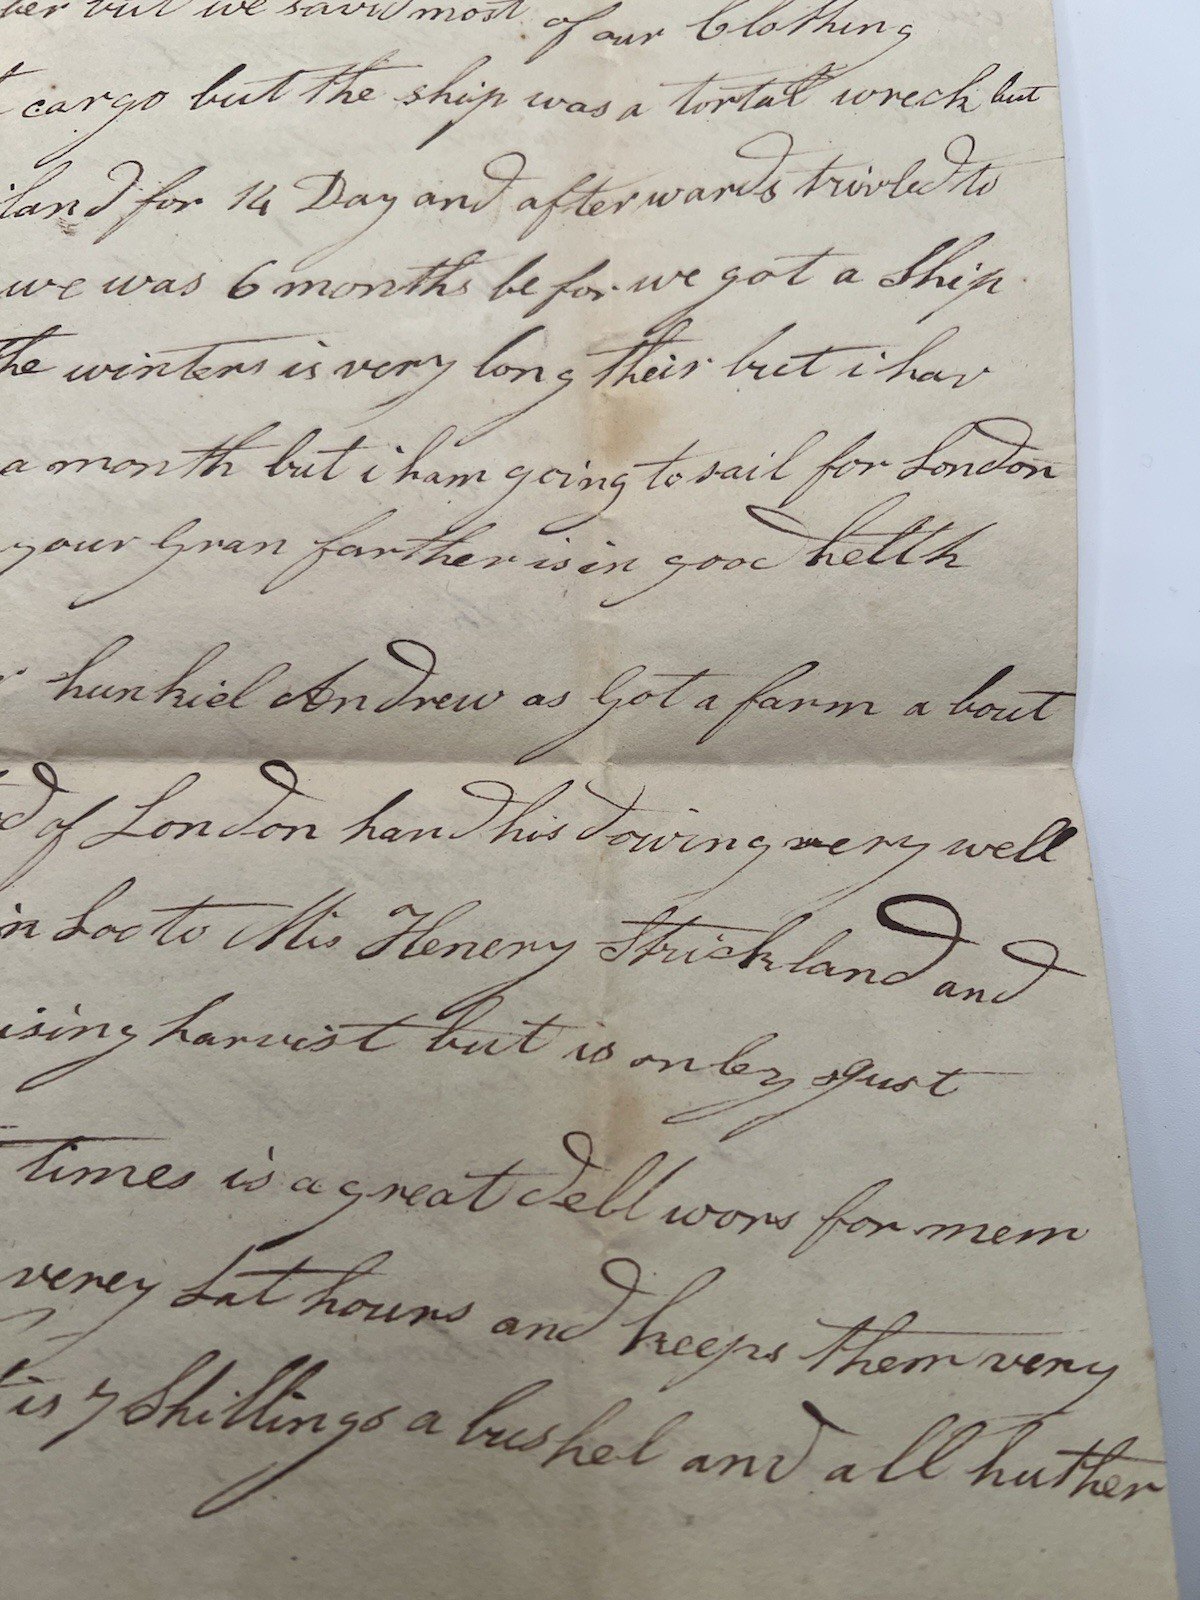 but we savd most of our Clothing
cargo but the ship was a tortal wreck but
land for 14 Day and afterwards trivled to
we was 6 months be for we got a Ship
the winters is very long their but i hav
a month but i ham going to sail for London
your Gran farther is in good helth
hunkiel Andrew as Got a farm a bout
of London hand his dowing very well
in Loo to Mis Henery Strickland and
ising harvist but is onley Just
times is a great dell wors for mem
verey Lat hours and keeps them very
is 7 Shillings a bushel and all huther